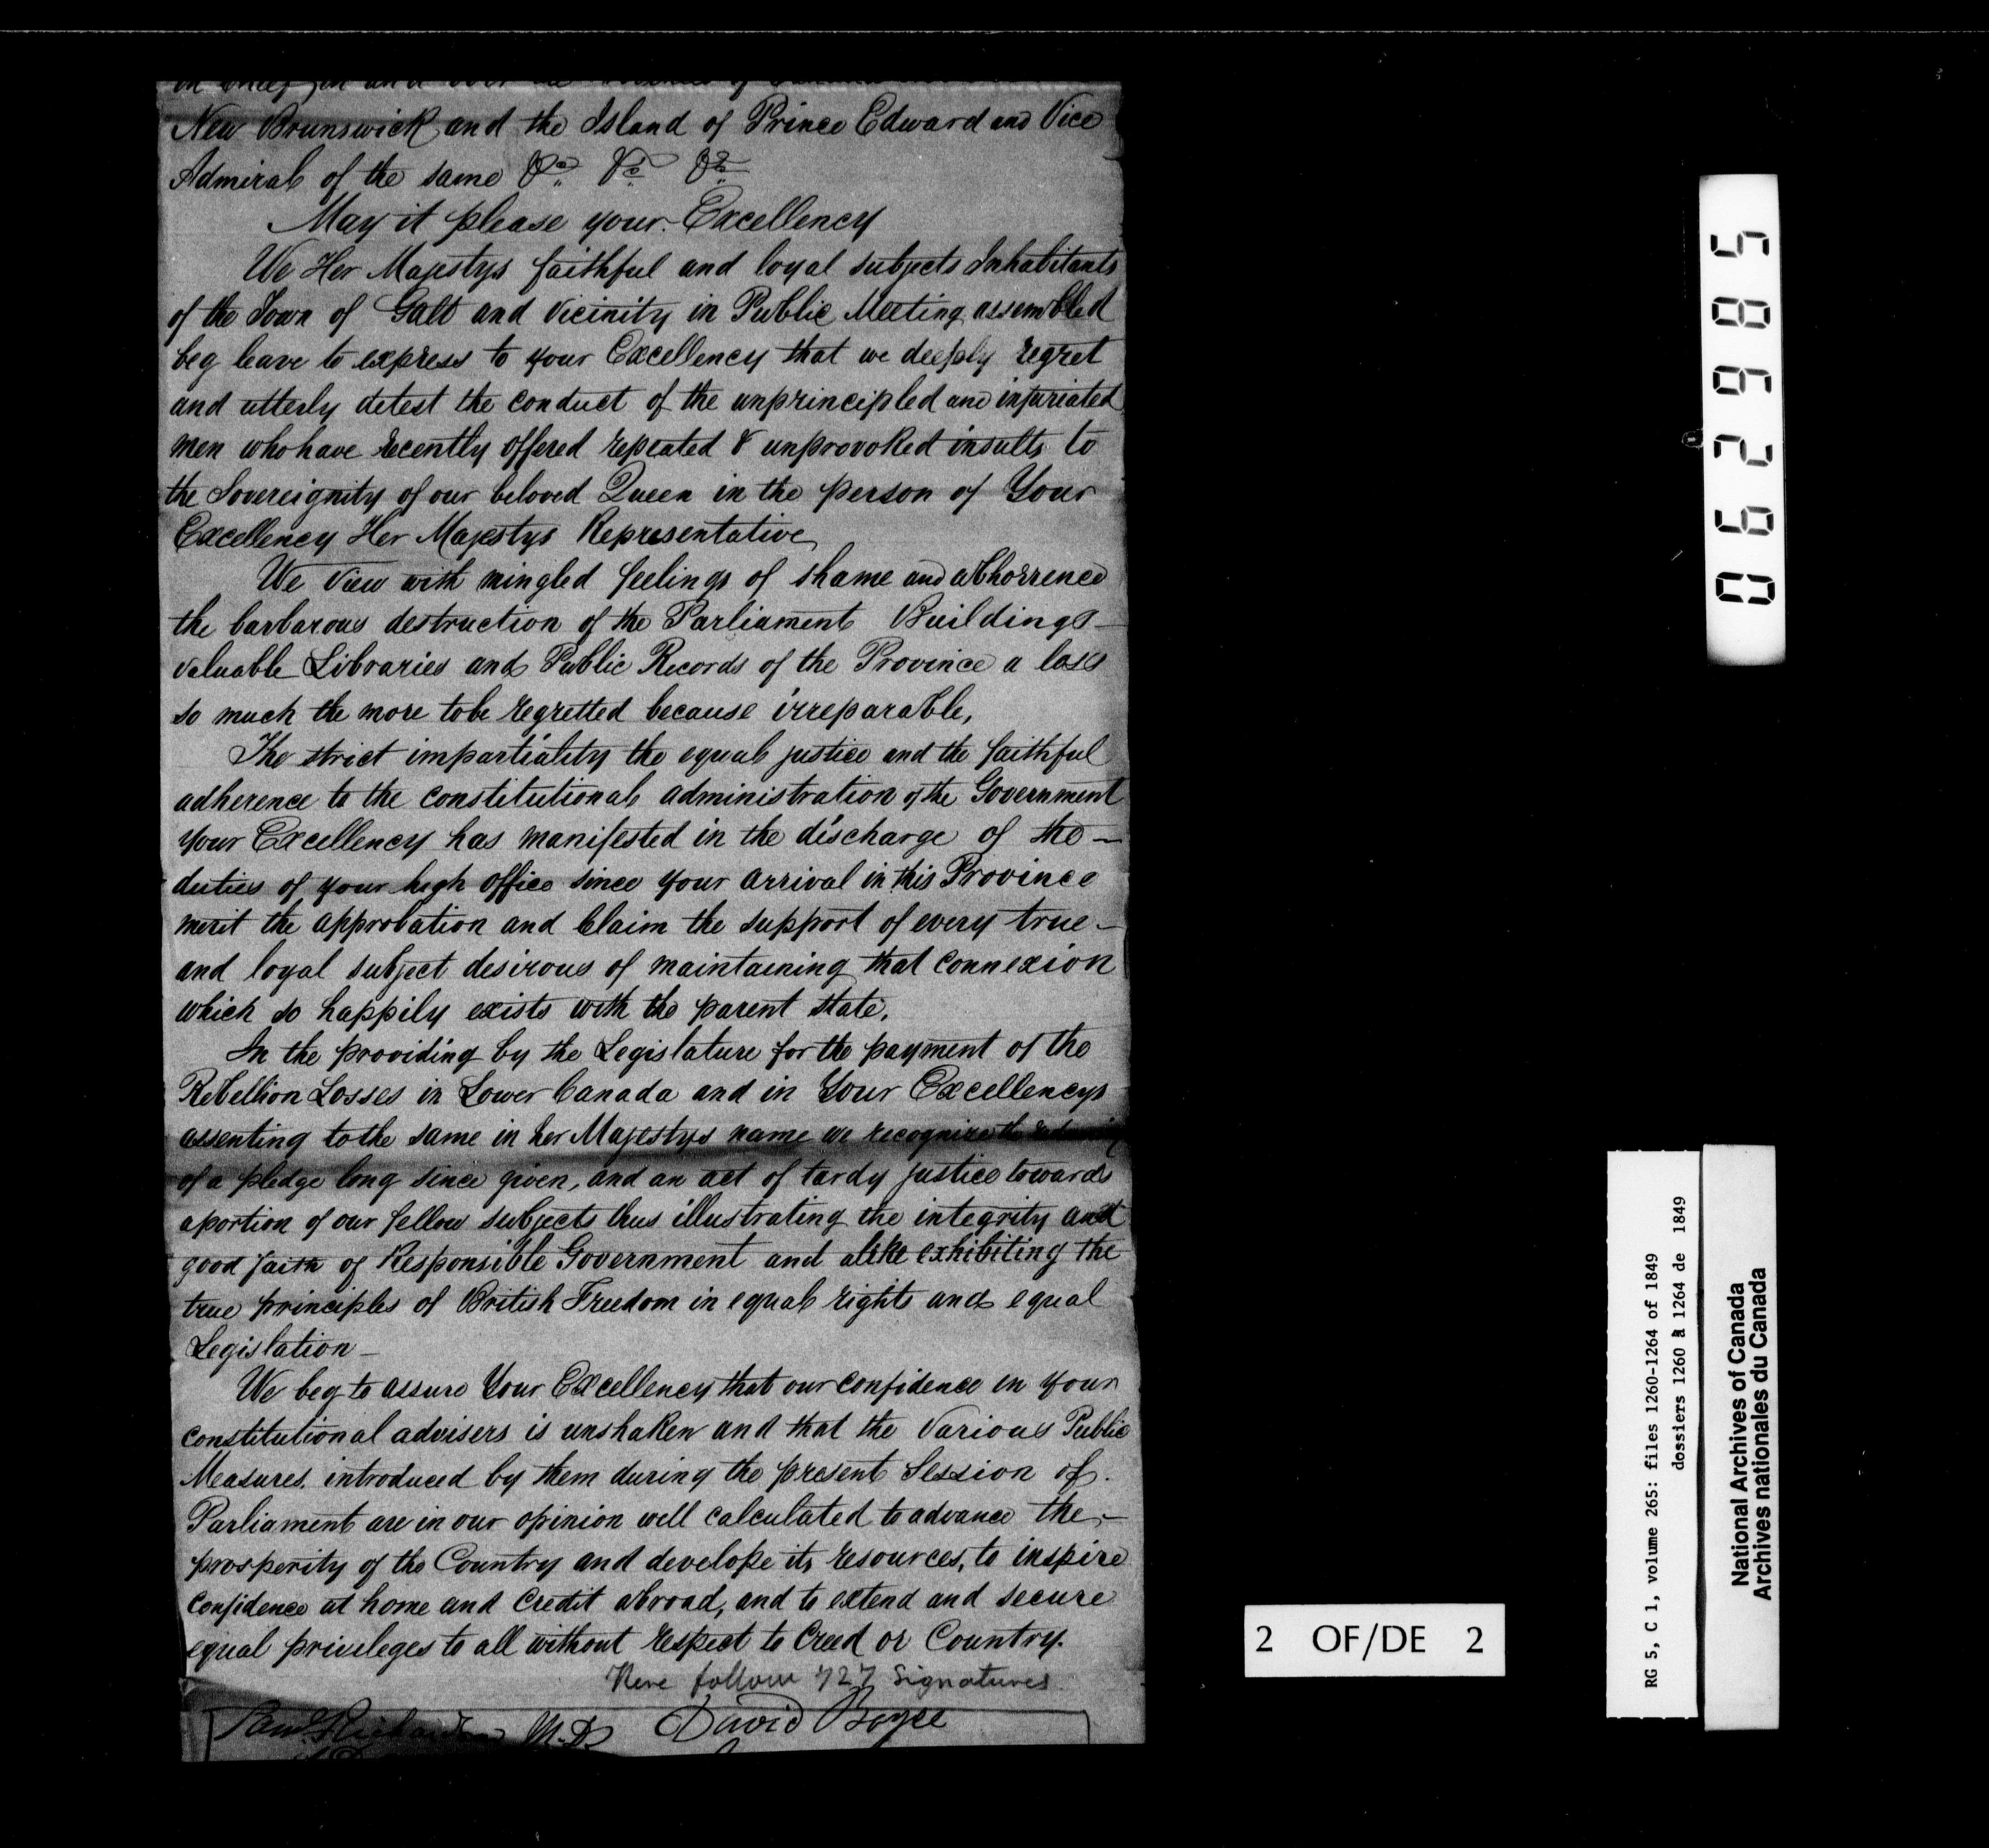 in Chief in and over the
New Brunswick and the Island of Prince Edward and Vice
Admiral of the same &c &c &c
May it please your Excellency
We Her Majestys faithful and loyal subjects Inhabitants
of the Town of Galt and Vicinity in Public Meeting assembled
beg leave to express to your Excellency that we deeply regret
and utterly detest the conduct of the unprincipled and infuriated
men who have recently offered repeated & unprovoked insults to
the Sovereignity of our beloved Queen in the person of Your
Excellency Her Majestys Representative
We View with mingled feelings of shame and abhorrence
the barbarous destruction of the Parliament Buildings—
valuable Libraries and Public Records of the Province a loss
so much the more to be regretted because irreparable,
The strict impartiality the equal justice and the faithful
adherence to the constitutional administration of the Government
your Excellency has manifested in the discharge of the —
duties of your high office since your arrival in this Province
merit the approbation and claim the support of every true —
and loyal subject desirous of maintaining that connexion
which so happily exists with the parent state.
In the providing by the Legislature for the payment of the
Rebellion Losses in Lower Canada and in Your Excellencys
assenting to the same in her Majestys name we recognize the
of a pledge long since given, and an act of tardy justice towards
a portion of our fellow subjects thus illustrating the integrity and
good faith of Responsible Government and alike exhibiting the
true principles of British Freedom in equal rights and equal
Legislation —
We beg to assure Your Excellency that our confidence in your
constitutional advisers is unshaken and that the Various Public
Measures introduced by them during the present Session of
Parliament are in our opinion well calculated to advance the —
prosperity of the Country and develope its resources, to inspire
confidence at home and credit abroad, and to extend and secure
equal privileges to all without respect to Creed or Country.
Here follow 727 Signatures
Saml Richardson M.D. David Boyce
062985
2 OF/DE 2
RG 5, C 1, volume 265: files 1260-1264 of 1849
dossiers 1260 à 1264 de 1849
National Archives of Canada
Archives nationales du Canada